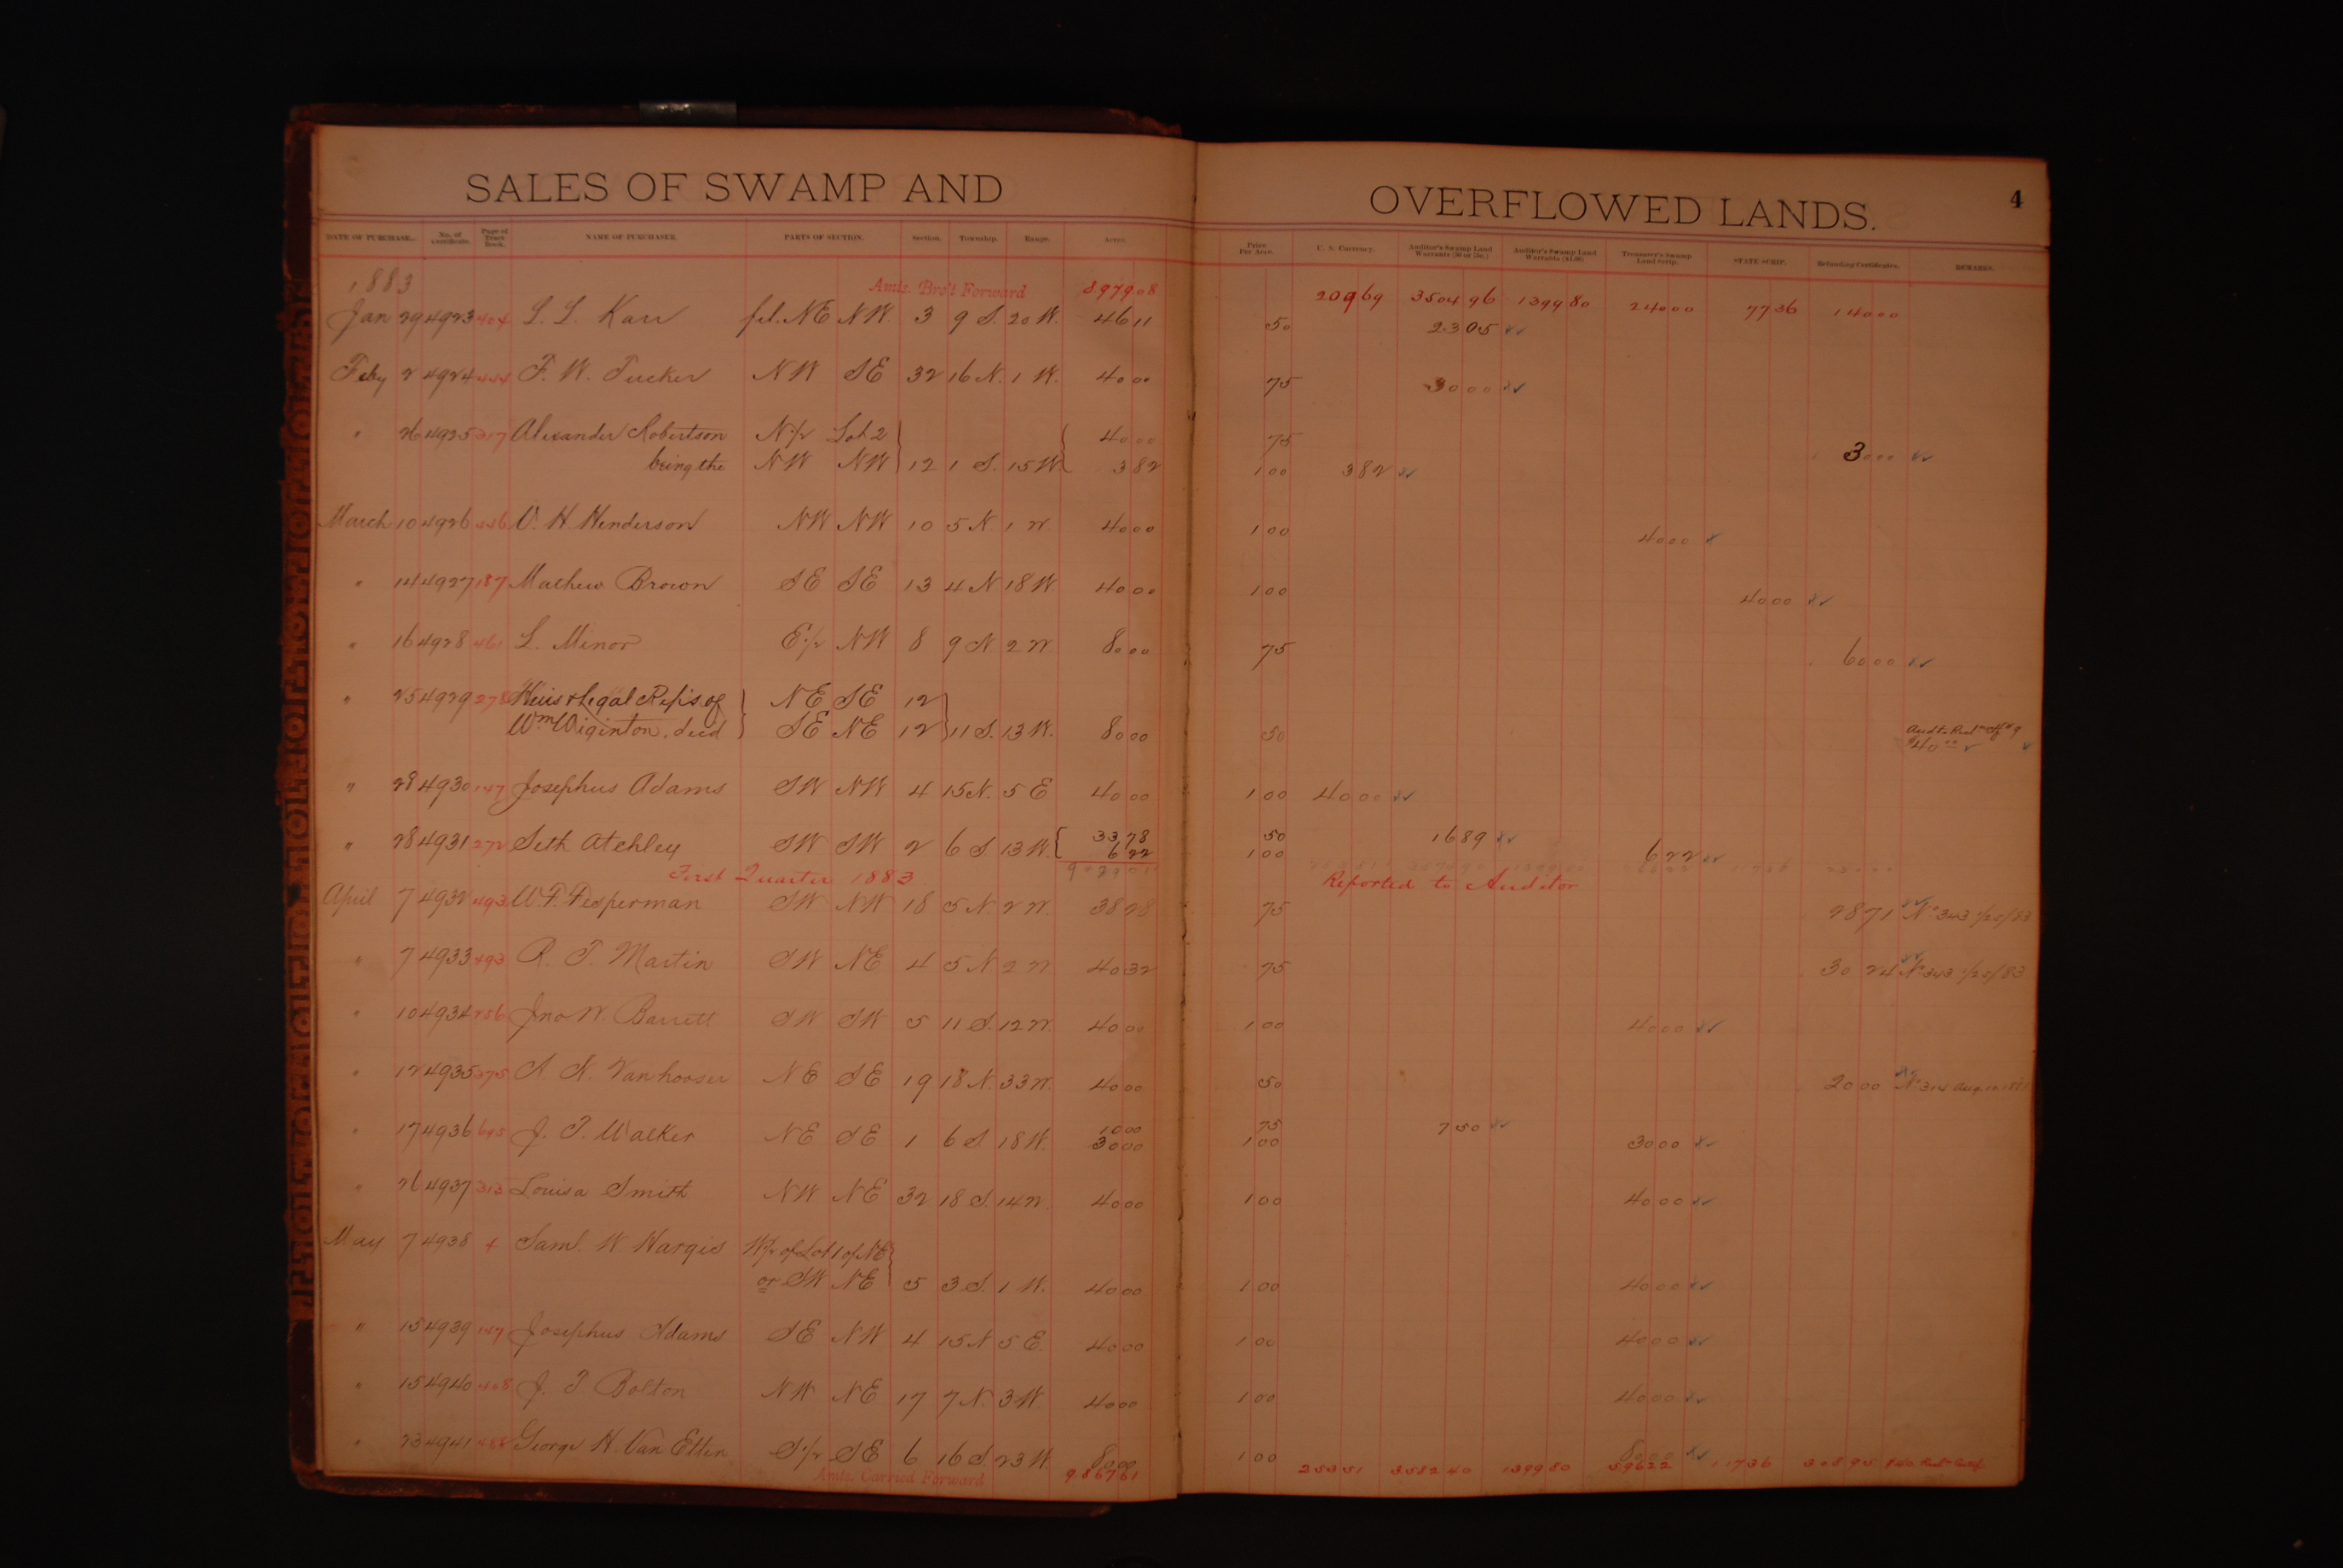 SALES OF SWAMP AND OVERFLOWED LANDS. 4
DATE OF PURCHASE. No. of Certificate. Page of Tract Book. NAME OF PURCHASER. PARTS OF SECTION. Section. Township. Range. Acres. Price Per Acre. U. S. Currency. Auditor's Swamp Land Warrants (50 or 75c.) Auditor's Swamp Land Warrants ($1.00) Treasurer's Swamp Land Scrip. STATE SCRIP. Refunding Certificates. REMARKS.
1883 Amts. Bro't Forward 8979 08 209 69 3504 96 1399 80 240 00 77 36 140 00
Jan 29 4923 404 L. L. Karr fcl. NE NW 3 9 S. 20 W. 46 11 50 23 05
Feby 2 4924 444 F. W. Tucker NW SE 32 16 N. 1 W. 40 00 75 30 00
" 26 4925 317 Alexander Robertson N½ Lot 2 40 00 75 30 00
being the NW NW 12 1 S. 15 W 3 82 1 00 3 82
March 10 4926 446 V. H. Henderson NW NW 10 5 N 1 W 40 00 1 00 40 00
" 14 4927 187 Mathew Brown SE SE 13 4 N 18 W. 40 00 1 00 40 00
" 16 4928 461 L. Minor E½ NW 8 9 N 2 W. 80 00 75 60 00
" 25 4929 278 Heirs & Legal Rep's of NE SE 12
Wm Wiginton, decd SE NE 12 11 S. 13 W. 80 00 50
$40 00
" 28 4930 147 Josephus Adams SW NW 4 15 N. 5 E 40 00 1 00 40 00
" 28 4931 272 Seth Atchley SW SW 2 6 S. 13 W. 33 78 50 16 89
6 22 1 00 6 22
First Quarter 1883 Reported to Auditor
April 7 4932 493 W. F. Fesperman SW NW 18 5 N. 2 W. 38 28 75 28 71 No 343 1/25/83
" 7 4933 493 R. T. Martin SW NE 4 5 N 2 W 40 32 75 30 24 No 343 1/25/83
" 10 4934 256 Jno W. Barrett SW SW 5 11 S. 12 W. 40 00 1 00 40 00
" 12 4935 375 A. N. Vanhooser NE SE 19 18 N. 33 W. 40 00 50 20 00 No 314 Aug.
" 17 4936 645 J. T. Walker NE SE 1 6 S. 18 W. 10 00 75 7 50
30 00 1 00 30 00
" 26 4937 313 Louisa Smith NW NE 32 18 S. 14 W. 40 00 1 00 40 00
May 7 4938 4 Saml. W Hargis W½ of Lot 1 of NE
or SW NE 5 3 S. 1 W. 40 00 1 00 40 00
" 15 4939 147 Josephus Adams SE NW 4 15 N 5 E. 40 00 1 00 40 00
" 15 4940 408 J. T Bolton NW NE 17 7 N. 3 W. 40 00 1 00 40 00
" 23 4941 488 George H. Van Etten S½ SE 6 16 S. 23 W 80 00 1 00 80 00
Amts. Carried Forward 9867 61 253 51 3582 40 1399 80 596 22 117 36 308 95